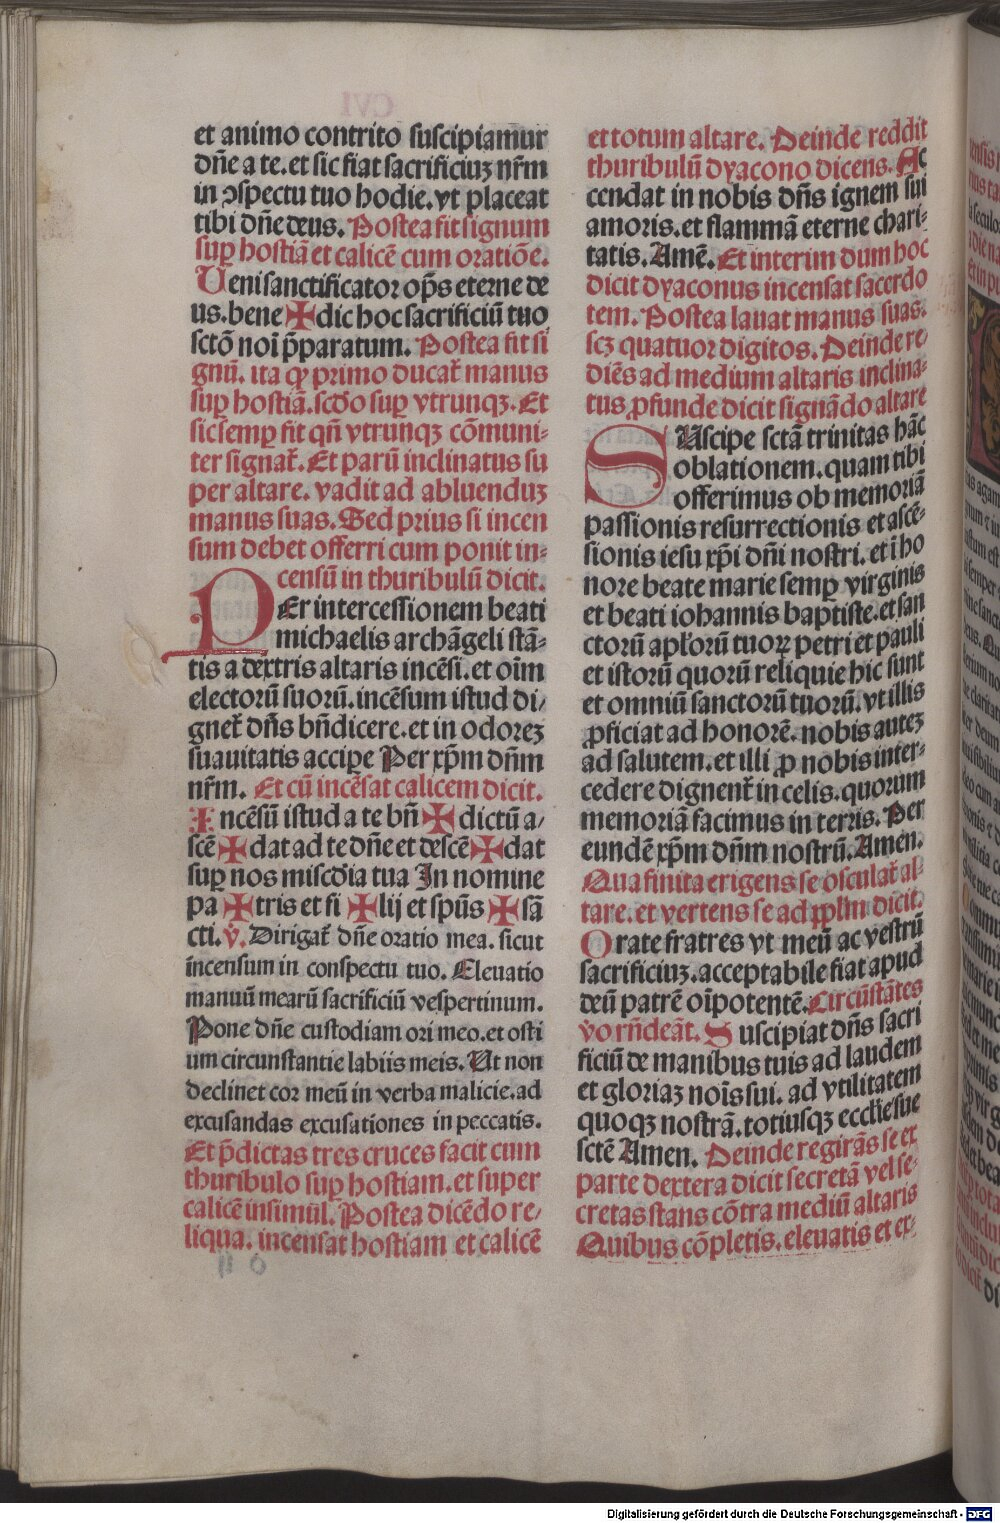 et animo contrito suscipiamur
dn̄e a te. et sic fiat sacrificiuȝ nr̄m
in ↄspectu tuo hodie. vt placeat
tibi dn̄e deus. Postea fit signum
suꝑ hostiā et calicē cum oratiōe.
Veni sanctificator op̄s eterne de
us. bene ✠ dic hoc sacrificiū tuo
sctō noi̅ p̄paratum. Postea fit si
gnū. ita ꝙ primo ducat᷑ manus
suꝑ hostiā. scd̄o suꝑ vtrunqꝫ. Et
sic semꝑ fit qn̄ vtrunqꝫ cōmuni⸗
ter signat᷑. Et parū inclinatus su
per altare. vadit ad abluenduȝ
manus suas. Sed prius si incen
sum debet offerri cum ponit in⸗
censū in thuribulū dicit.
PEr intercessionem beati
michaelis archāgeli stā⸗
tis a dextris altaris incēsi. et oīm
electorū suorū. incēsum istud di⸗
gnet᷑ dn̄s bn̄dicere. et in odoreȝ
suauitatis accipe Per xp̄m dn̄m
nr̄m. Et cū incēsat calicem dicit.
Incēsū istud a te bn̄ ✠ dictū a⸗
scē ✠ dat ad te dn̄e et descē ✠ dat
suꝑ nos misc̄dia tua In nomine
pa ✠ tris et fi ✠ lij et spūs ✠ sā
cti. ℣. Dirigat᷑ dn̄e oratio mea. sicut
īncensum in conspectu tuo. Eleuatio
manuū mearū sacrificiū vespertinum.
Pone dn̄e custodiam ori meo. et osti
um circunstantie labiis meis. Ut non
declinet cor meū in verba malicie. ad
excusandas excusationes in peccatis.
Et p̄dictas tres cruces facit cum
thuribulo suꝑ hostiam. et super
calicē insimūl. Postea dicēdo re⸗
liqua. incensat hostiam et calicē
et totum altare. Deinde reddit
thuribulū dyacono dicens. Ac
cendat in nobis dn̄s ignem sui
amoris. et flammā eterne chari⸗
tatis. Amē. Et interim dum hoc
dicit dyaconus incensat sacerdo
tem. Postea lauat manus suas.
scȝ quatuor digitos. Deinde re⸗
diēs ad medium altaris inclina⸗
tus ꝓfunde dicit signādo altare
SUscipe sctā trinitas hāc
oblationem. quam tibi
offerimus ob memoriā
passionis resurrectionis et ascē⸗
sionis iesu xp̄i dn̄i nostri. et ī ho
nore beate marie semꝑ virginis
et beati iohannis baptiste. et san
ctorū apl̄orū tuoꝝ petri et pauli
et istorū quorū reliquie hic sunt
et omniū sanctorū tuorū. vt illis
ꝓficiat ad honorē. nobis auteȝ
ad salutem. et illi ꝓ nobis inter⸗
cedere dignent᷑ in celis. quorum
memoriā facimus in terris. Per
eundē xp̄m dn̄m nostrū. Amen.
Qua finita erigens se osculat᷑ al⸗
tare. et vertens se ad ppl̄m dicit.
Orate fratres vt meū ac vestrū
sacrificiuȝ. acceptabile fiat apud
deū patrē oīpotentē. Circūstātes
vo rn̄deāt. Suscipiat dn̄s sacri
ficiū de manibus tuis ad laudem
et gloriaȝ noīs sui. ad vtilitatem
quoqꝫ nostrā. totiusqꝫ eccl̄ie sue
sctē Amen. Deinde regirās se ex
parte dextera dicit secretā vel se⸗
cretas stans cōtra mediū altaris
Quibus cōpletis. eleuatis et ex⸗
Digitalisierung gefördert durch die Deutsche Forschungsgemeinschaft - DFG